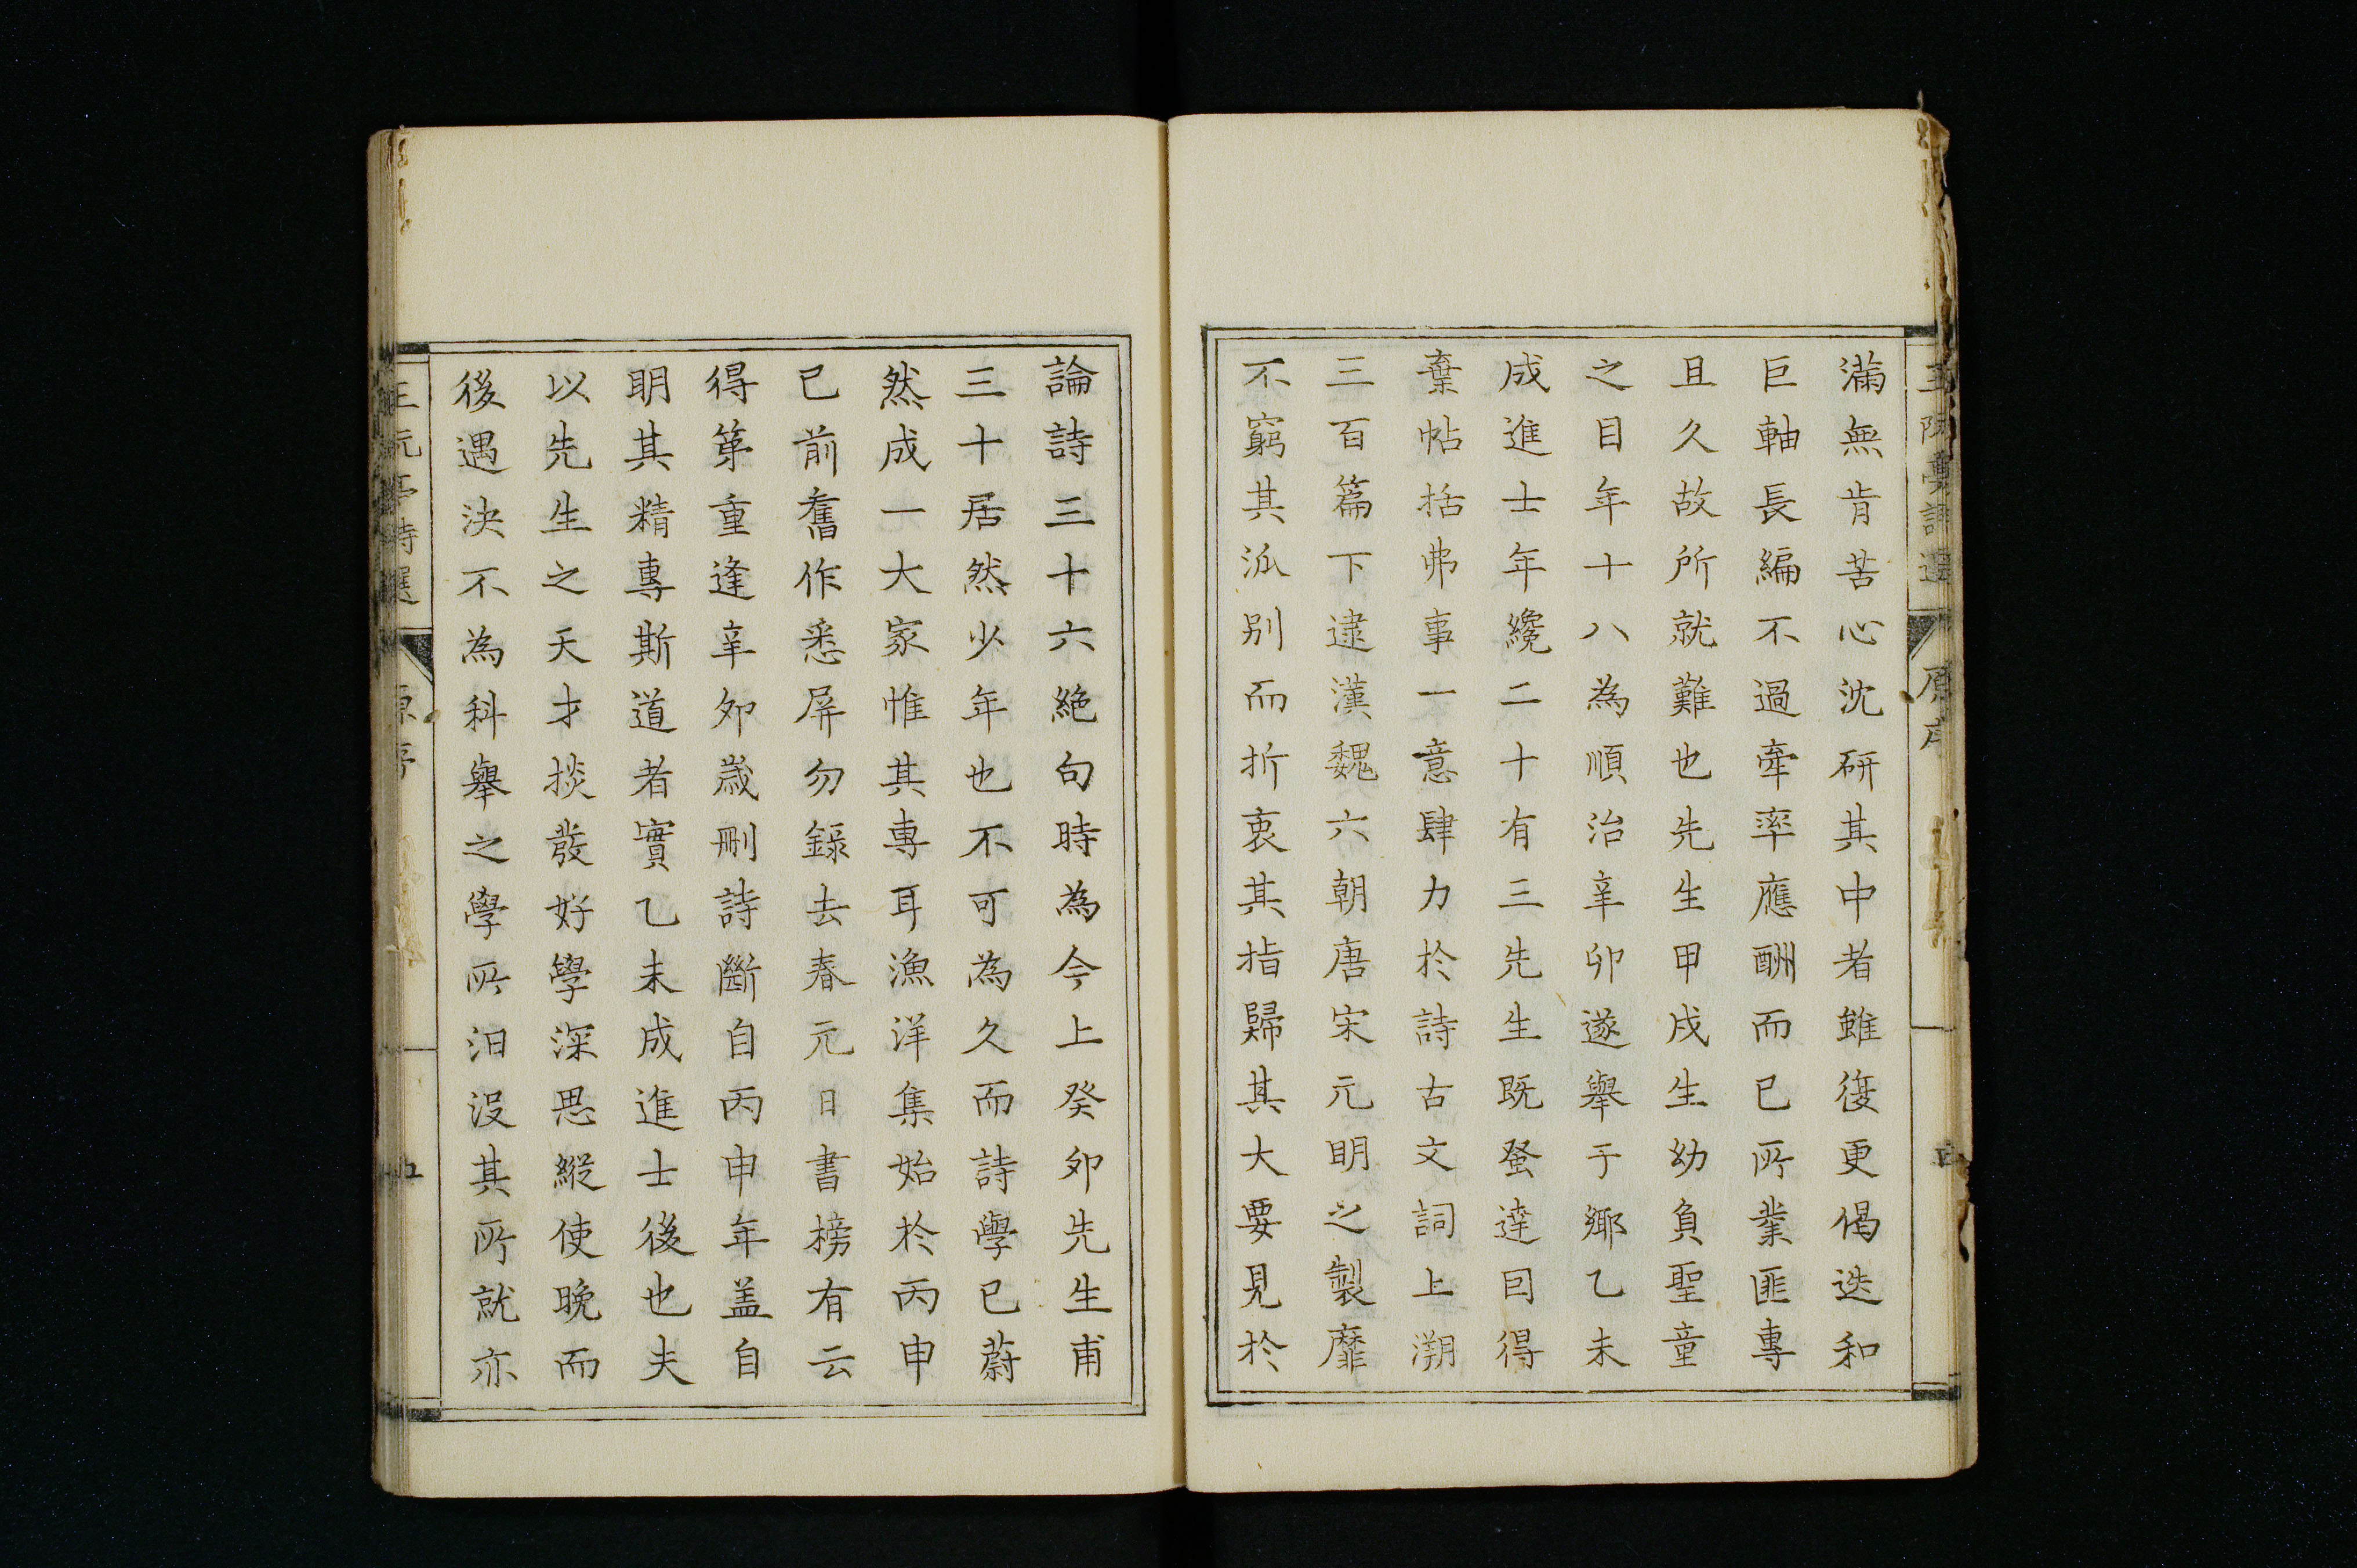 滿無肯苦心沈研其中者雖復更倡迭和
巨軸長編不過牽率應酬而已所業匪專
且久故所就難也先生甲戌生幼負聖童
之目年十八為順治辛卯遂舉于鄉乙未
成進士年纔二十有三先生既蚤達囙得
棄帖括弗事一意肆力於詩古文詞上溯
三百篇下逮漢魏六朝唐宋元明之製靡
不窮其派別而折衷其指歸其大要見於
論詩三十六絶句時為今上癸卯先生甫
三十居然少年也不可為久而詩學已蔚
然成一大家惟其專耳漁洋集始於丙申
已前舊作悉屏勿錄去春元日書榜有云
得第重逢辛卯歲刪詩斷自丙申年盖自
明其精專斯道者實乙未成進士後也夫
以先生之天才掞發好學深思縱使晚而
後遇決不為科舉之學所汩沒其所就亦
王阮亭詩選
原序
五